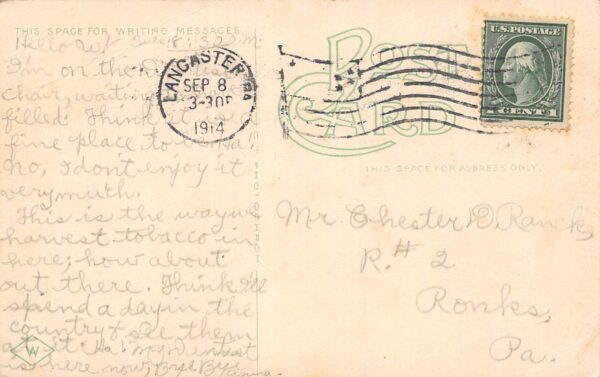 THIS SPACE FOR WRITING MESSAGES
POST CARD
U.S. POSTAGE
CENT 1
LANCASTER PA.
SEP 8
3-30P
1914
THIS SPACE FOR ADDRESS ONLY.
Hello
I'm on the
chair, waiting
filled. Think it
fine place to
no, I don't enjoy it
very much.
This is the way we
harvest tobacco in
here; how about
out there. Think I'll
spend a day in the
country & see them
at it. Ha! My Dentist
is here now, Bye Bye
Mr. Chester D. Ranck,
R. # 2
Ronks,
Pa.
W